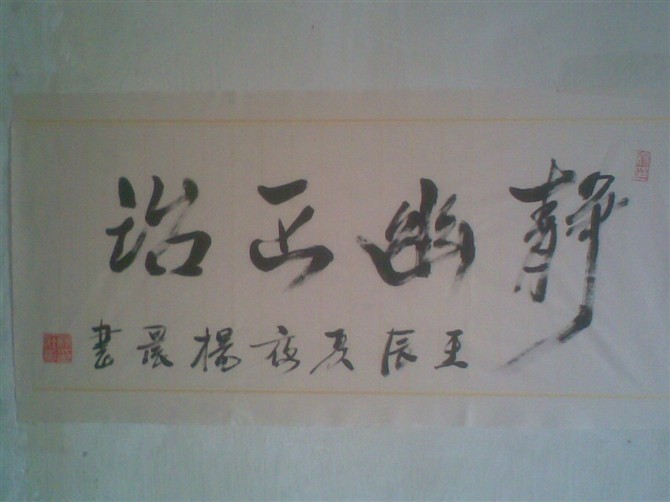 静幽正治
壬辰夏夜楊晨書